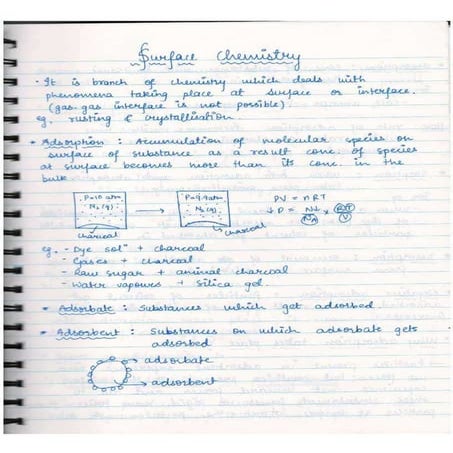 Surface Chemistry
· It is branch of chemistry which deals with
phenomena taking place at surface or interface.
(gas-gas interface is not possible).
eg. rusting & crystallisation.
· Adsorption : Accumulation of molecular species on
surface of substance as a result conc. of species
at surface becomes more than its conc. in the
bulk.
P=10 atm
N₂(g)
charcoal
→
P=9.9 atm
N₂(g)
charcoal
PV = nRT
↓P = N↓ / NA × RT / V
eg. - Dye solⁿ + charcoal
- Gases + charcoal
- Raw sugar + animal charcoal
- Water vapours + Silica gel.
· Adsorbate : Substances which get adsorbed
· Adsorbent : Substances on which adsorbate gets
adsorbed
→ adsorbate
→ adsorbent